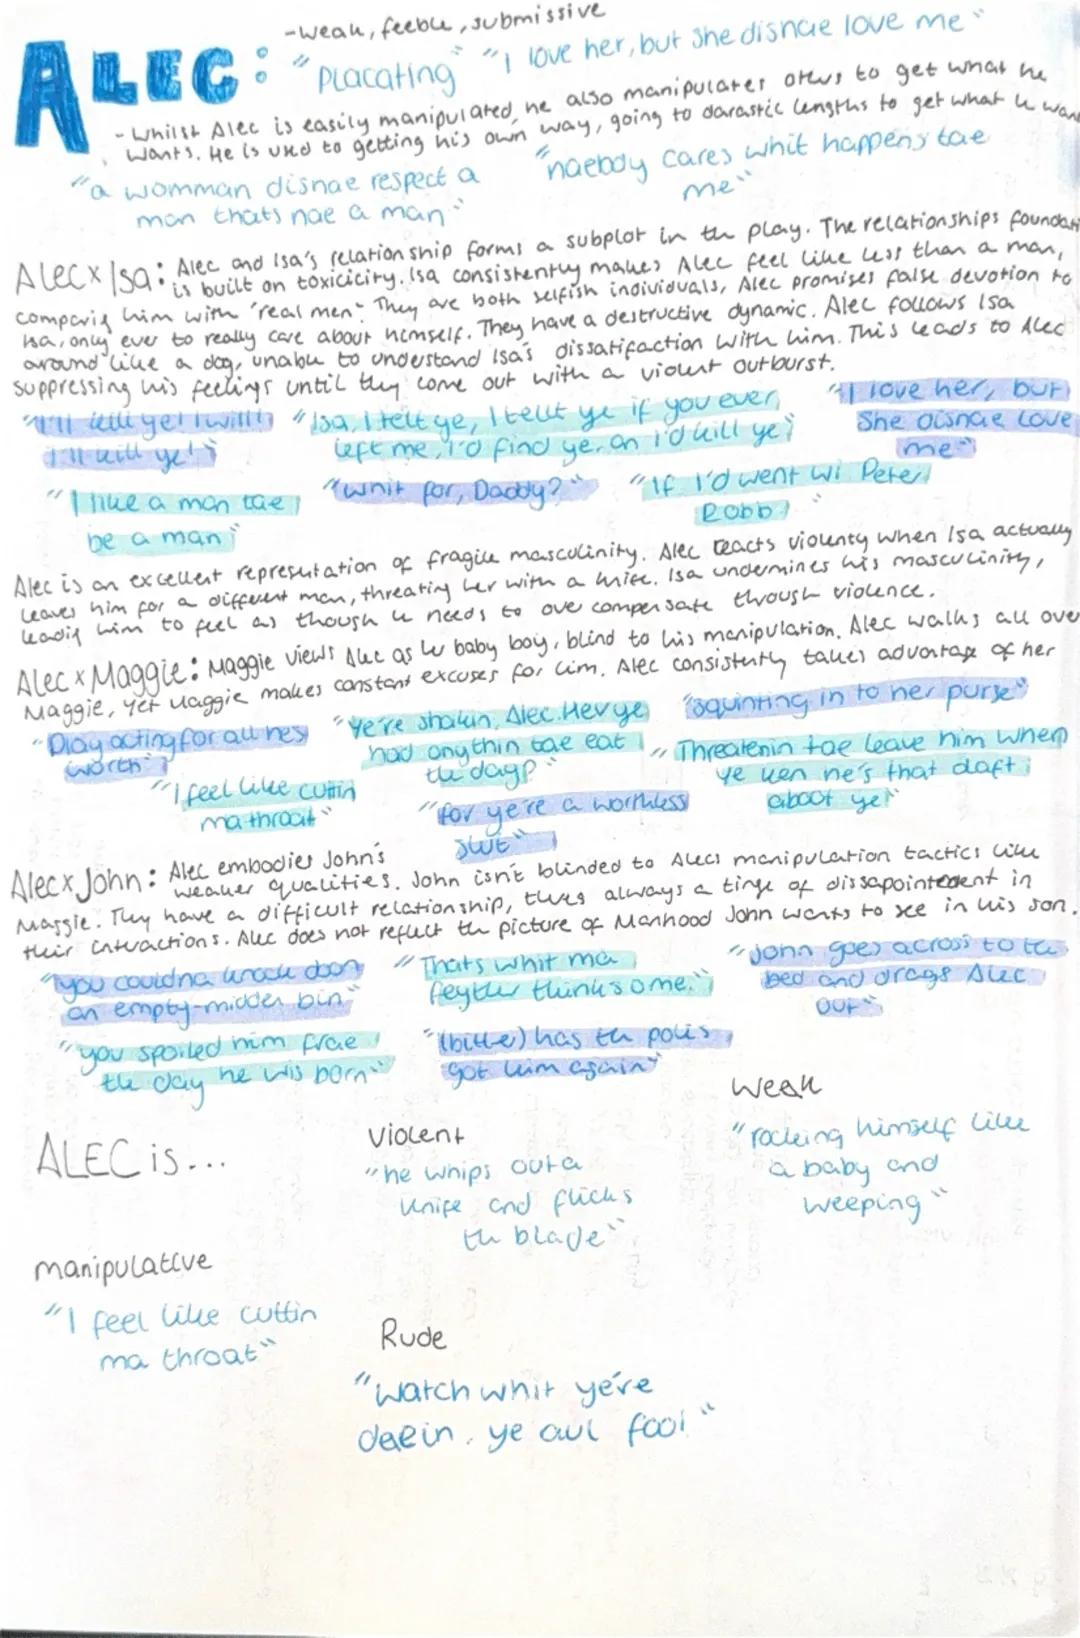 -weak, feeble, submissive
ALEC:
"placating" "I love her, but she disnae love me"
- Whilst Alec is easily manipulated, he also manipulates others to get what he
wants. He is used to getting his own way, going to darastic lengths to get what he wants
"a womman disnae respect a
man thats nae a man"
"naebody cares whit happens tae
me"
Alec x Isa: Alec and Isa's relationship forms a subplot in the play. The relationships foundation
is built on toxicicity. Isa consistently makes Alec feel like less than a man,
comparing him with 'real men'. They are both selfish individuals, Alec promises false devotion to
Isa, only ever to really care about himself. They have a destructive dynamic. Alec follows Isa
around like a dog, unable to understand Isa's dissatifaction with him. This leads to Alec
suppressing his feelings until they come out with a violent outburst.
"I'll kill ye! I will!
I'll kill ye!"
"Isa, I tell ye, I tellt ye if you ever
left me, I'd find ye, an I'd kill ye"
"I love her, but
she disnae love
me"
"I like a man tae
be a man"
"whit for, Daddy?"
"If I'd went wi Peter
Robb"
Alec is an excellent representation of fragile masculinity. Alec reacts violenty when Isa actually
leaves him for a different man, threating her with a knife. Isa undermines his masculinity,
leading him to feel as though he needs to over compensate through violence.
Alec x Maggie: Maggie views Alec as her baby boy, blind to his manipulation. Alec walks all over
Maggie, yet Maggie makes constant excuses for him. Alec consistently takes advantage of her
"Play acting for all hes
worth"
"Ye're shakin, Alec. Hev ye
had onythin tae eat
the day?"
"squinting in to her purse"
"I feel like cuttin
ma throat"
"for ye're a worthless
slut"
"Threatenin tae leave him when
ye ken he's that daft
aboot ye!"
Alec x John: Alec embodies John's
weaker qualities. John isn't blinded to Alecs manipulation tactics like
Maggie. They have a difficult relationship, theres always a tinge of dissapointedent in
their interactions. Alec does not reflect the picture of Manhood John wants to see in his son.
"you couldna knock doon
an empty-midden bin"
"Thats whit ma
feyther thinks o me."
"John goes across to the
bed and drags Alec
out"
"you spoiled him frae
the day he wis born"
"(bitter) has the polis
got him again"
ALEC is...
Violent
"he whips out a
knife and flicks
the blade"
Weak
"rocking himself like
a baby and
weeping"
manipulative
"I feel like cuttin
ma throat"
Rude
"Watch whit ye're
daein, ye aul fool"